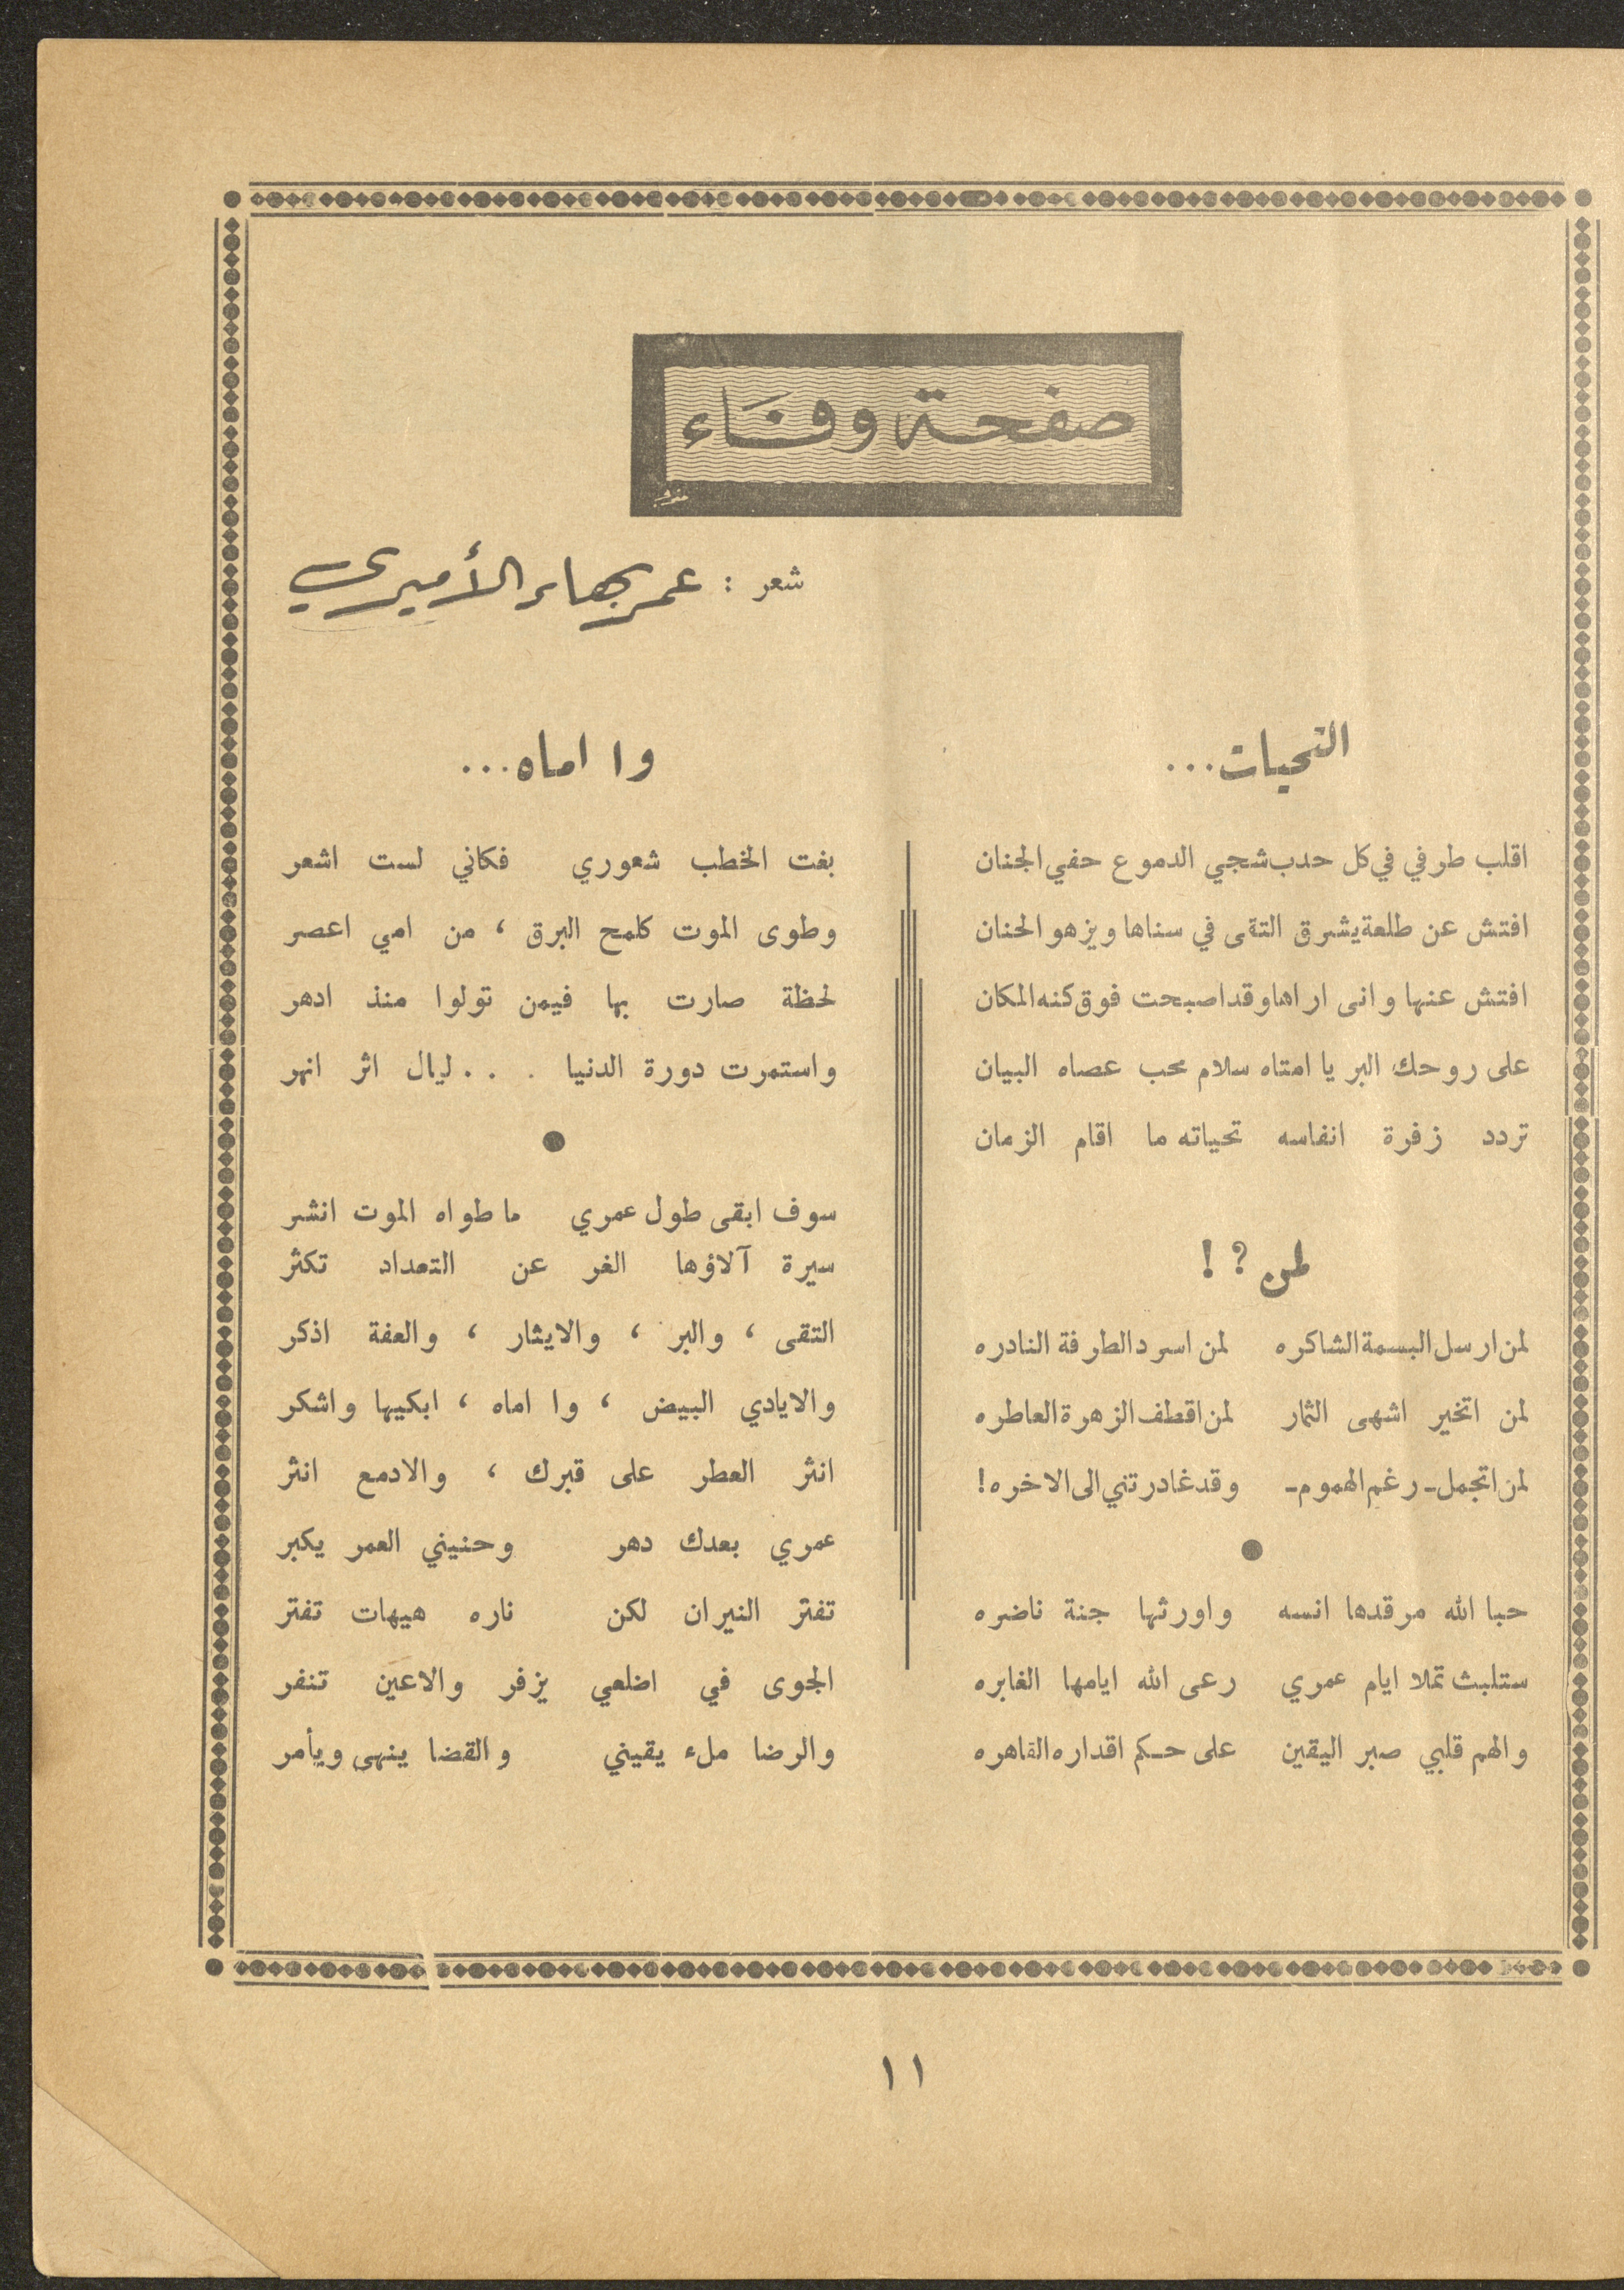 صفحة وفاء
شعر : عمر بهاء الأميري
التحيات...
اقلب طرفي في كل حدب شجي الدموع حفي الجنان
افتش عن طلعة يشرق التقى في سناها ويزهو الحنان
افتش عنها وانى اراها وقد اصبحت فوق كنه المكان
على روحك البر يا امتاه سلام محب عصاه البيان
تردد زفرة انفاسه تحياته ما اقام الزمان
لمن ؟ !
لمن ارسل البسمة الشاكره لمن اسرد الطرفة النادره
لمن اتخير اشهى الثمار لمن اقطف الزهرة العاطره
لمن اتجمل ـ رغم الهموم ـ وقد غادرتني الى الاخره !
حبا الله مرقدها انسه واورثها جنة ناضره
ستلبث تملا ايام عمري رعى الله ايامها الغابره
والهم قلبي صبر اليقين على حكم اقداره القاهره
وا اماه...
بغت الخطب شعوري فكاني لست اشعر
وطوى الموت كلمح البرق ، من امي اعصر
لحظة صارت بها فيمن تولوا منذ ادهر
واستمرت دورة الدنيا . . . ليال اثر انهر
سوف ابقى طول عمري ما طواه الموت انشر
سيرة آلاؤها الغر عن التعداد تكثر
التقى ، والبر ، والايثار ، والعفة اذكر
والايادي البيض ، وا اماه ، ابكيها واشكر
انثر العطر على قبرك ، والادمع انثر
عمري بعدك دهر وحنيني العمر يكبر
تفتر النيران لكن ناره هيهات تفتر
الجوى في اضلعي يزفر والاعين تنفر
والرضا ملء يقيني والقضا ينهى ويأمر
١١